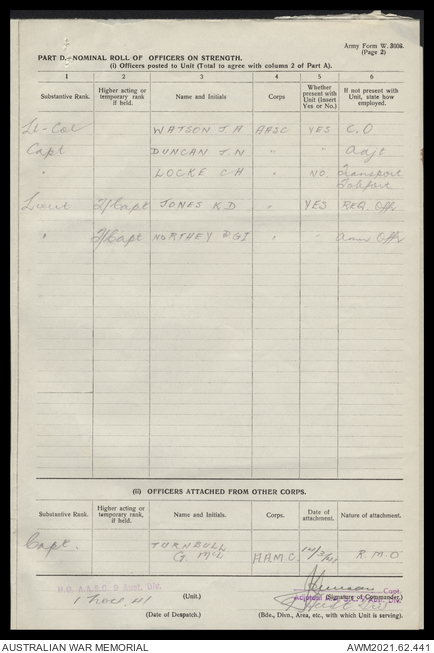 Army Form W. 3008.
(Page 2)
PART D.-NOMINAL ROLL OF OFFICERS ON STRENGTH.
(i) Officers posted to Unit (Total to agree with column 2 of Part A).
1 2 3 4 5 6
Substantive Rank. Higher acting or temporary rank if held. Name and Initials Corps Whether present with Unit (Insert Yes or No.) If not present with Unit, state how employed.
Lt-Col WATSON J A AASC YES C.O
Capt DUNCAN J.N " " Adjt
" LOCKE C H NO Transport
Lieut T/Capt JONES K D " YES REQ. Offr
" T/Capt NORTHEY " " Offr
(ii) OFFICERS ATTACHED FROM OTHER CORPS.
Substantive Rank. Higher acting or temporary rank, if held. Name and Initials. Corps. Date of attachment. Nature of attachment.
Capt. TURNBULL
G A.A.M.C. R.M.O
H.Q. A.A.S.C. 9 Aust. Div.
1 Nov 41 (Unit.) Capt.
(Signature of Commander.)
(Date of Despatch.) (Bde., Divn., Area, etc., with which Unit is serving).
AUSTRALIAN WAR MEMORIAL AWM2021.62.441